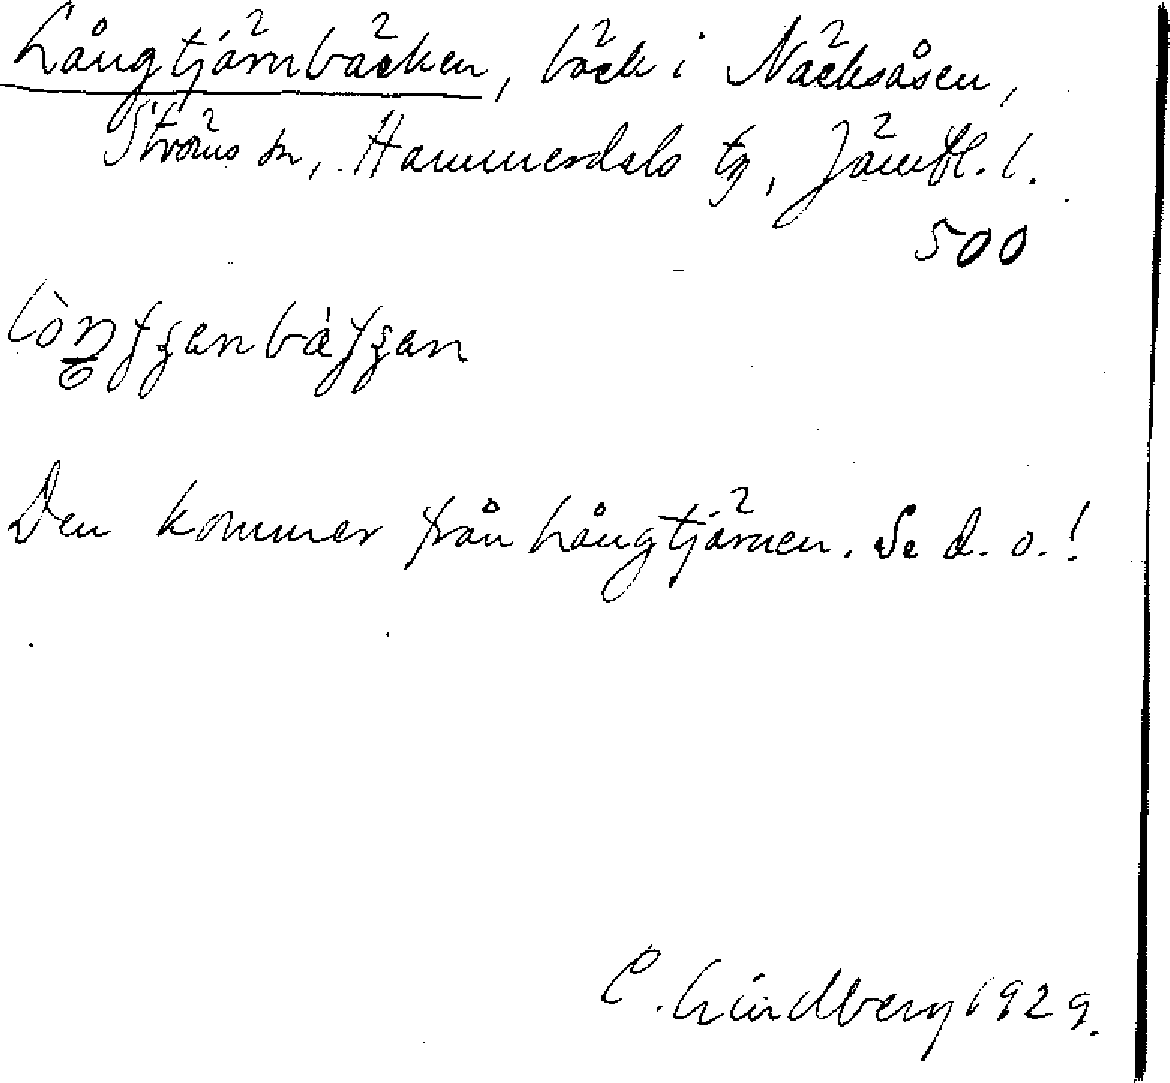 Långtjärnbäcken, bäck i Näcksåsen,
Ströms sn, Hammerdals tg, Jämtl. l.
500
Den kommer från Långtjärnen. Se d. o.!
C. Lindberg 1929.